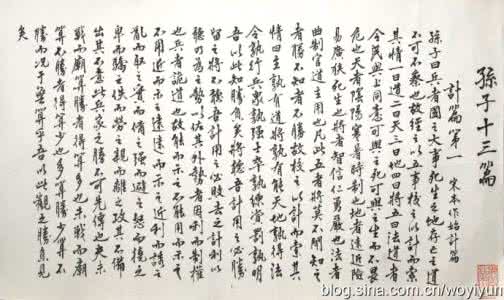 孫子十三篇
計篇第一 宋本作始計篇
孫子曰兵者國之大事死生之地存亡之道
不可不察也故經之以五事校之以計而索
其情一曰道二曰天三曰地四曰將五曰法道者
令民與上同意可與之死可與之生而不畏
危也天者陰陽寒暑時制也地者遠近險
易廣狹死生也將者智信仁勇嚴也法者
曲制官道主用也凡此五者將莫不聞知之
者勝不知者不勝故校之以計而索其
情曰主孰有道將孰有能天地孰得法
令孰行兵衆孰强士卒孰練賞罰孰明
吾以此知勝負矣將聽吾計用之必勝
留之將不聽吾計用之必敗去之計利以
聽乃爲之勢以佐其外勢者因利而制權
也兵者詭道也故能而示之不能用而示之
不用近而示之遠遠而示之近利而誘之
亂而取之實而備之强而避之怒而撓之
卑而驕之佚而勞之親而離之攻其不備
出其不意此兵家之勝不可先傳也夫未
戰而廟算勝者得算多也未戰而廟
算不勝者得算少也多算勝少算不
勝而況于無算乎吾以此觀之勝負見
矣
blog.sina.com.cn/woyiyun